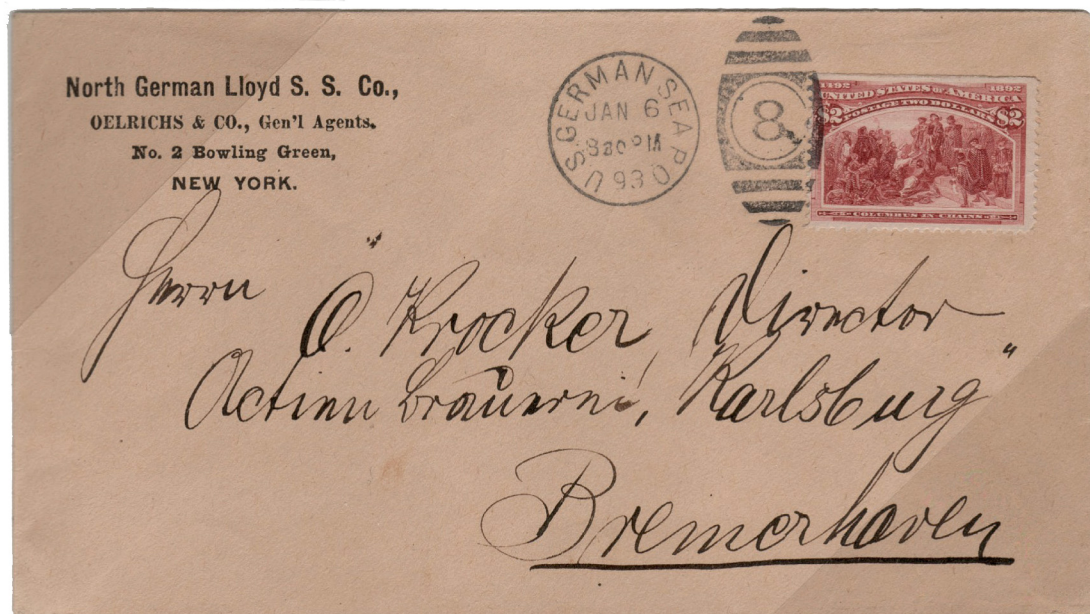 North German Lloyd S. S. Co.,
OELRICHS & CO., Gen'l Agents.
No. 2 Bowling Green,
NEW YORK.
U.S. GERMAN SEA P.O.
JAN 6
8 30 PM
93
8
1492 1892
UNITED STATES OF AMERICA
POSTAGE TWO DOLLARS
$2 $2
COLUMBUS IN CHAINS
Herrn
O. Krocker, Director
Actien Brauerei, Karlsburg"
Bremerhaven